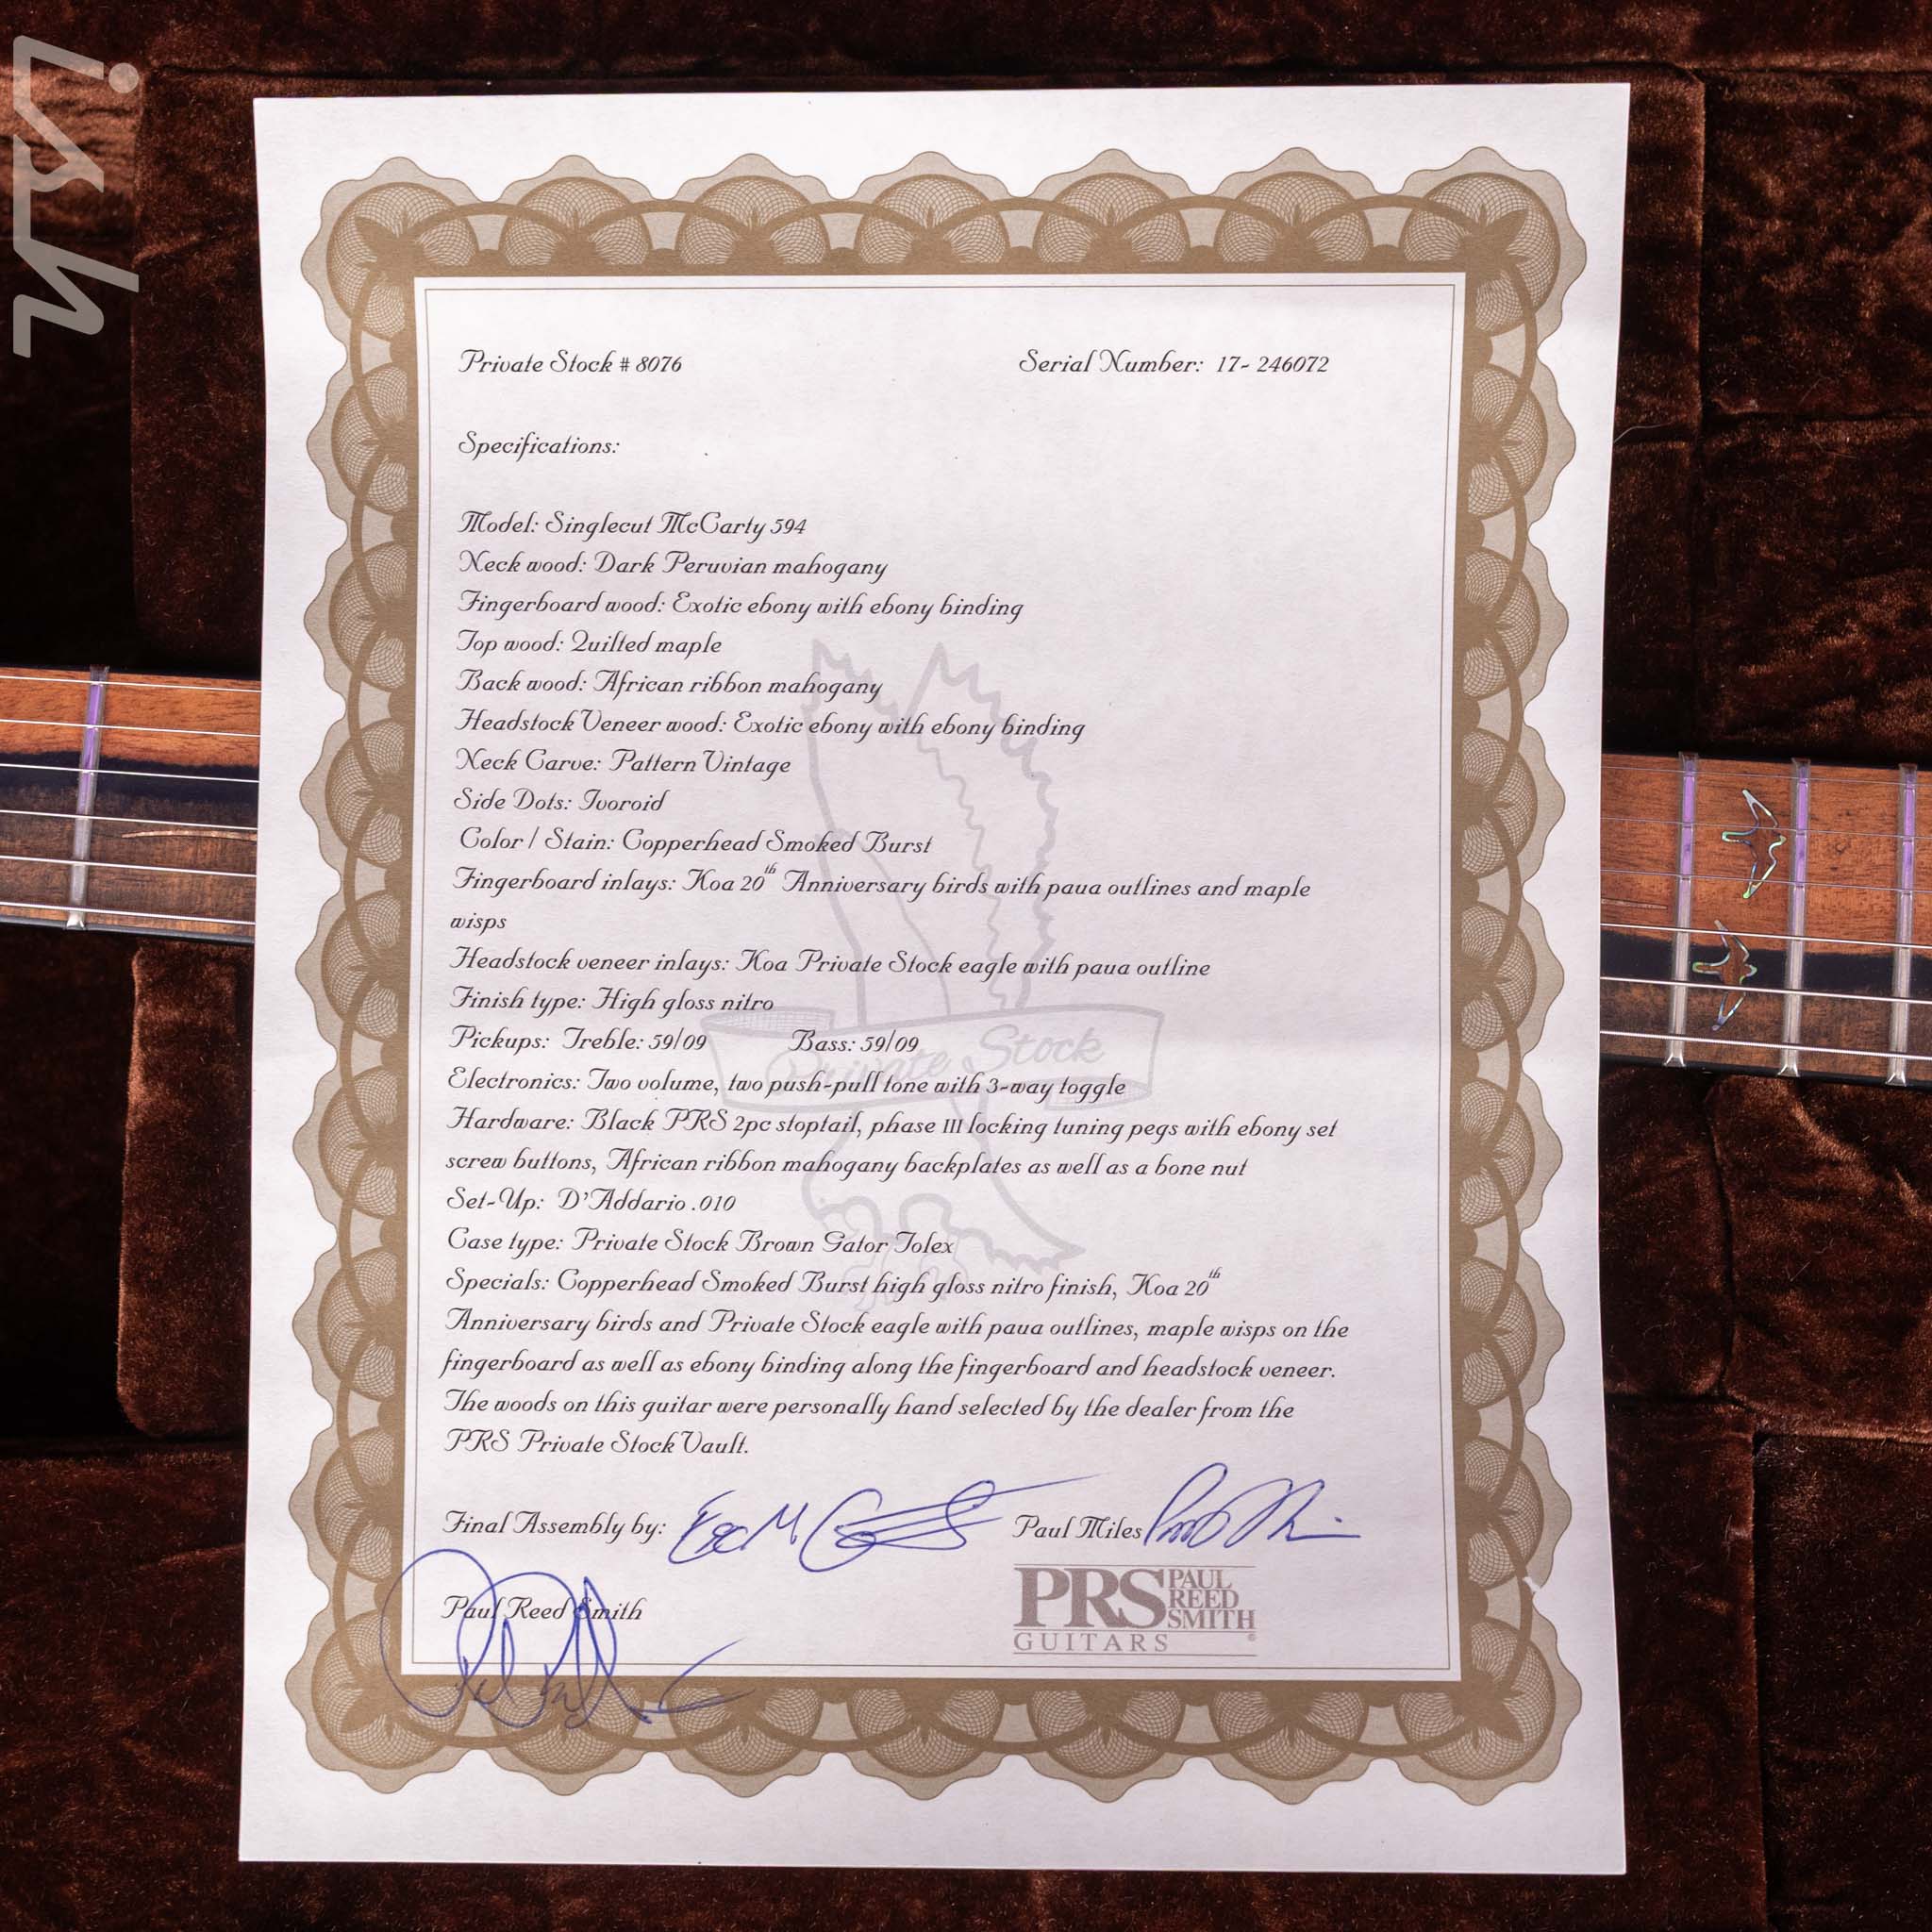 ish
Private Stock # 8076 Serial Number: 17- 246072
Specifications:
Model: Singlecut McCarty 594
Neck wood: Dark Peruvian mahogany
Fingerboard wood: Exotic ebony with ebony binding
Top wood: Quilted maple
Back wood: African ribbon mahogany
Headstock Veneer wood: Exotic ebony with ebony binding
Neck Carve: Pattern Vintage
Side Dots: Ivoroid
Color / Stain: Copperhead Smoked Burst
Fingerboard inlays: Koa 20th Anniversary birds with paua outlines and maple
wisps
Headstock veneer inlays: Koa Private Stock eagle with paua outline
Finish type: High gloss nitro
Pickups: Treble: 59/09 Bass: 59/09
Private Stock
Electronics: Two volume, two push-pull tone with 3-way toggle
Hardware: Black PRS 2pc stoptail, phase III locking tuning pegs with ebony set
screw buttons, African ribbon mahogany backplates as well as a bone nut
Set-Up: D'Addario .010
Case type: Private Stock Brown Gator Tolex
Specials: Copperhead Smoked Burst high gloss nitro finish, Koa 20th
Anniversary birds and Private Stock eagle with paua outlines, maple wisps on the
fingerboard as well as ebony binding along the fingerboard and headstock veneer.
The woods on this guitar were personally hand selected by the dealer from the
PRS Private Stock Vault.
Final Assembly by: Paul Miles
Paul Reed Smith
PRS PAUL REED SMITH
GUITARS